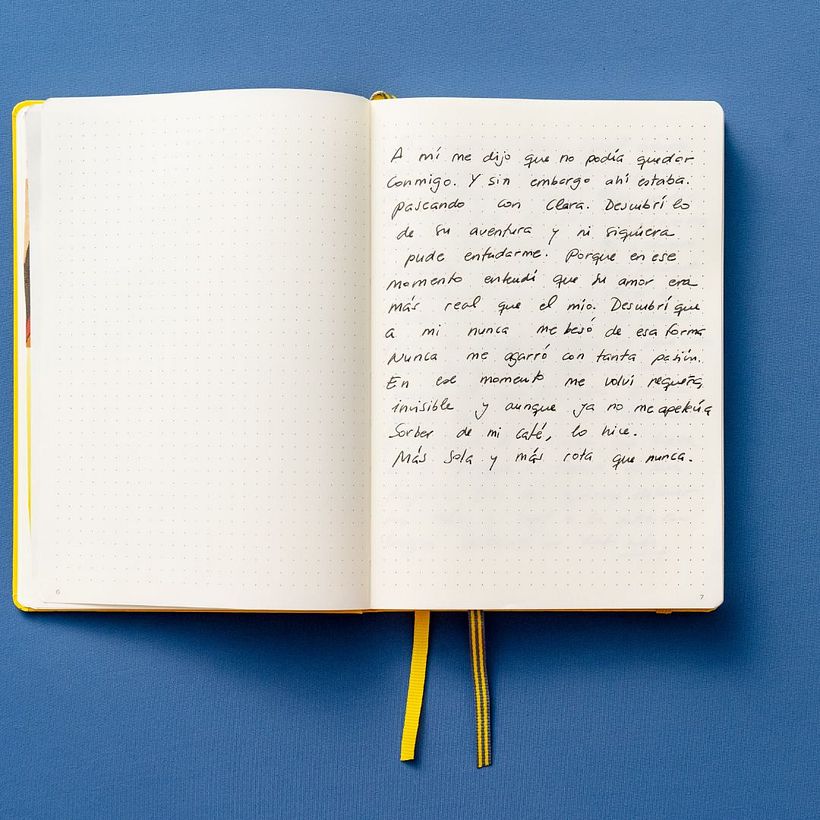 A mí me dijo que no podía quedar
conmigo. Y sin embargo ahí estaba.
paseando con Clara. Descubrí lo
de su aventura y ni siquiera
pude enfadarme. Porque en ese
momento entendí que su amor era
más real que el mío. Descubrí que
a mi nunca me besó de esa forma
Nunca me agarró con tanta pasión.
En ese momento me volví pequeña,
invisible y aunque ya no me apetecía
Sorber de mi café, lo hice.
Más sola y más rota que nunca.
6
7